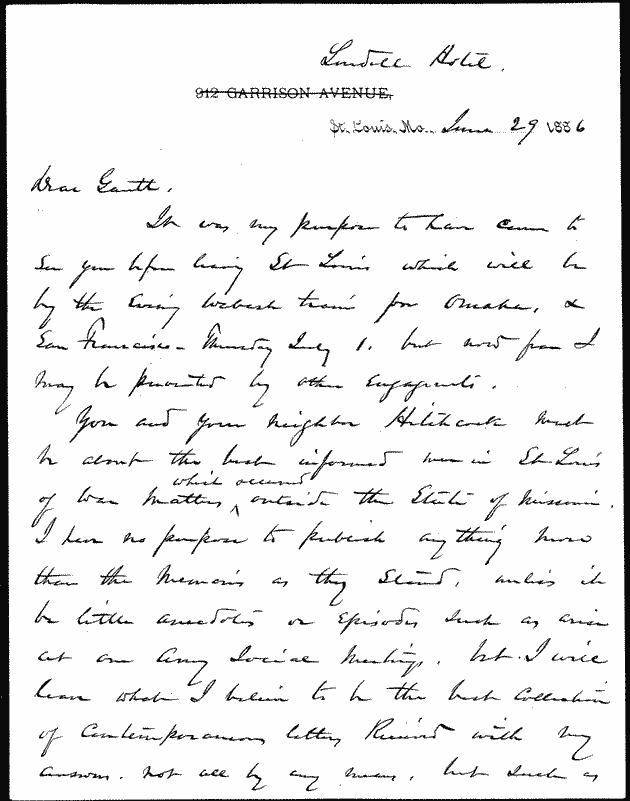 Lindell Hotel.
912 GARRISON AVENUE,
St. Louis, Mo. June 29 1886
Dear Gantt.
It was my purpose to have come to
see you before leaving St Louis which will be
by the Evening Wabash train for Omaha, &
San Francisco - Thursday July 1. but now fear I
may be prevented by other engagements.
You and your neighbor Hitchcock must
be about the best informed men in St Louis
which occurred
of War matters ^ outside the State of Missouri.
I have no purpose to publish anything more
than the Memoirs as they stand, unless it
be little anecdotes or Episodes such as arise
at our Army Social Meetings. but I will
leave what I believe to be the best Collection
of Contemporaneous letters Received with my
answers. not all by any means, but such as